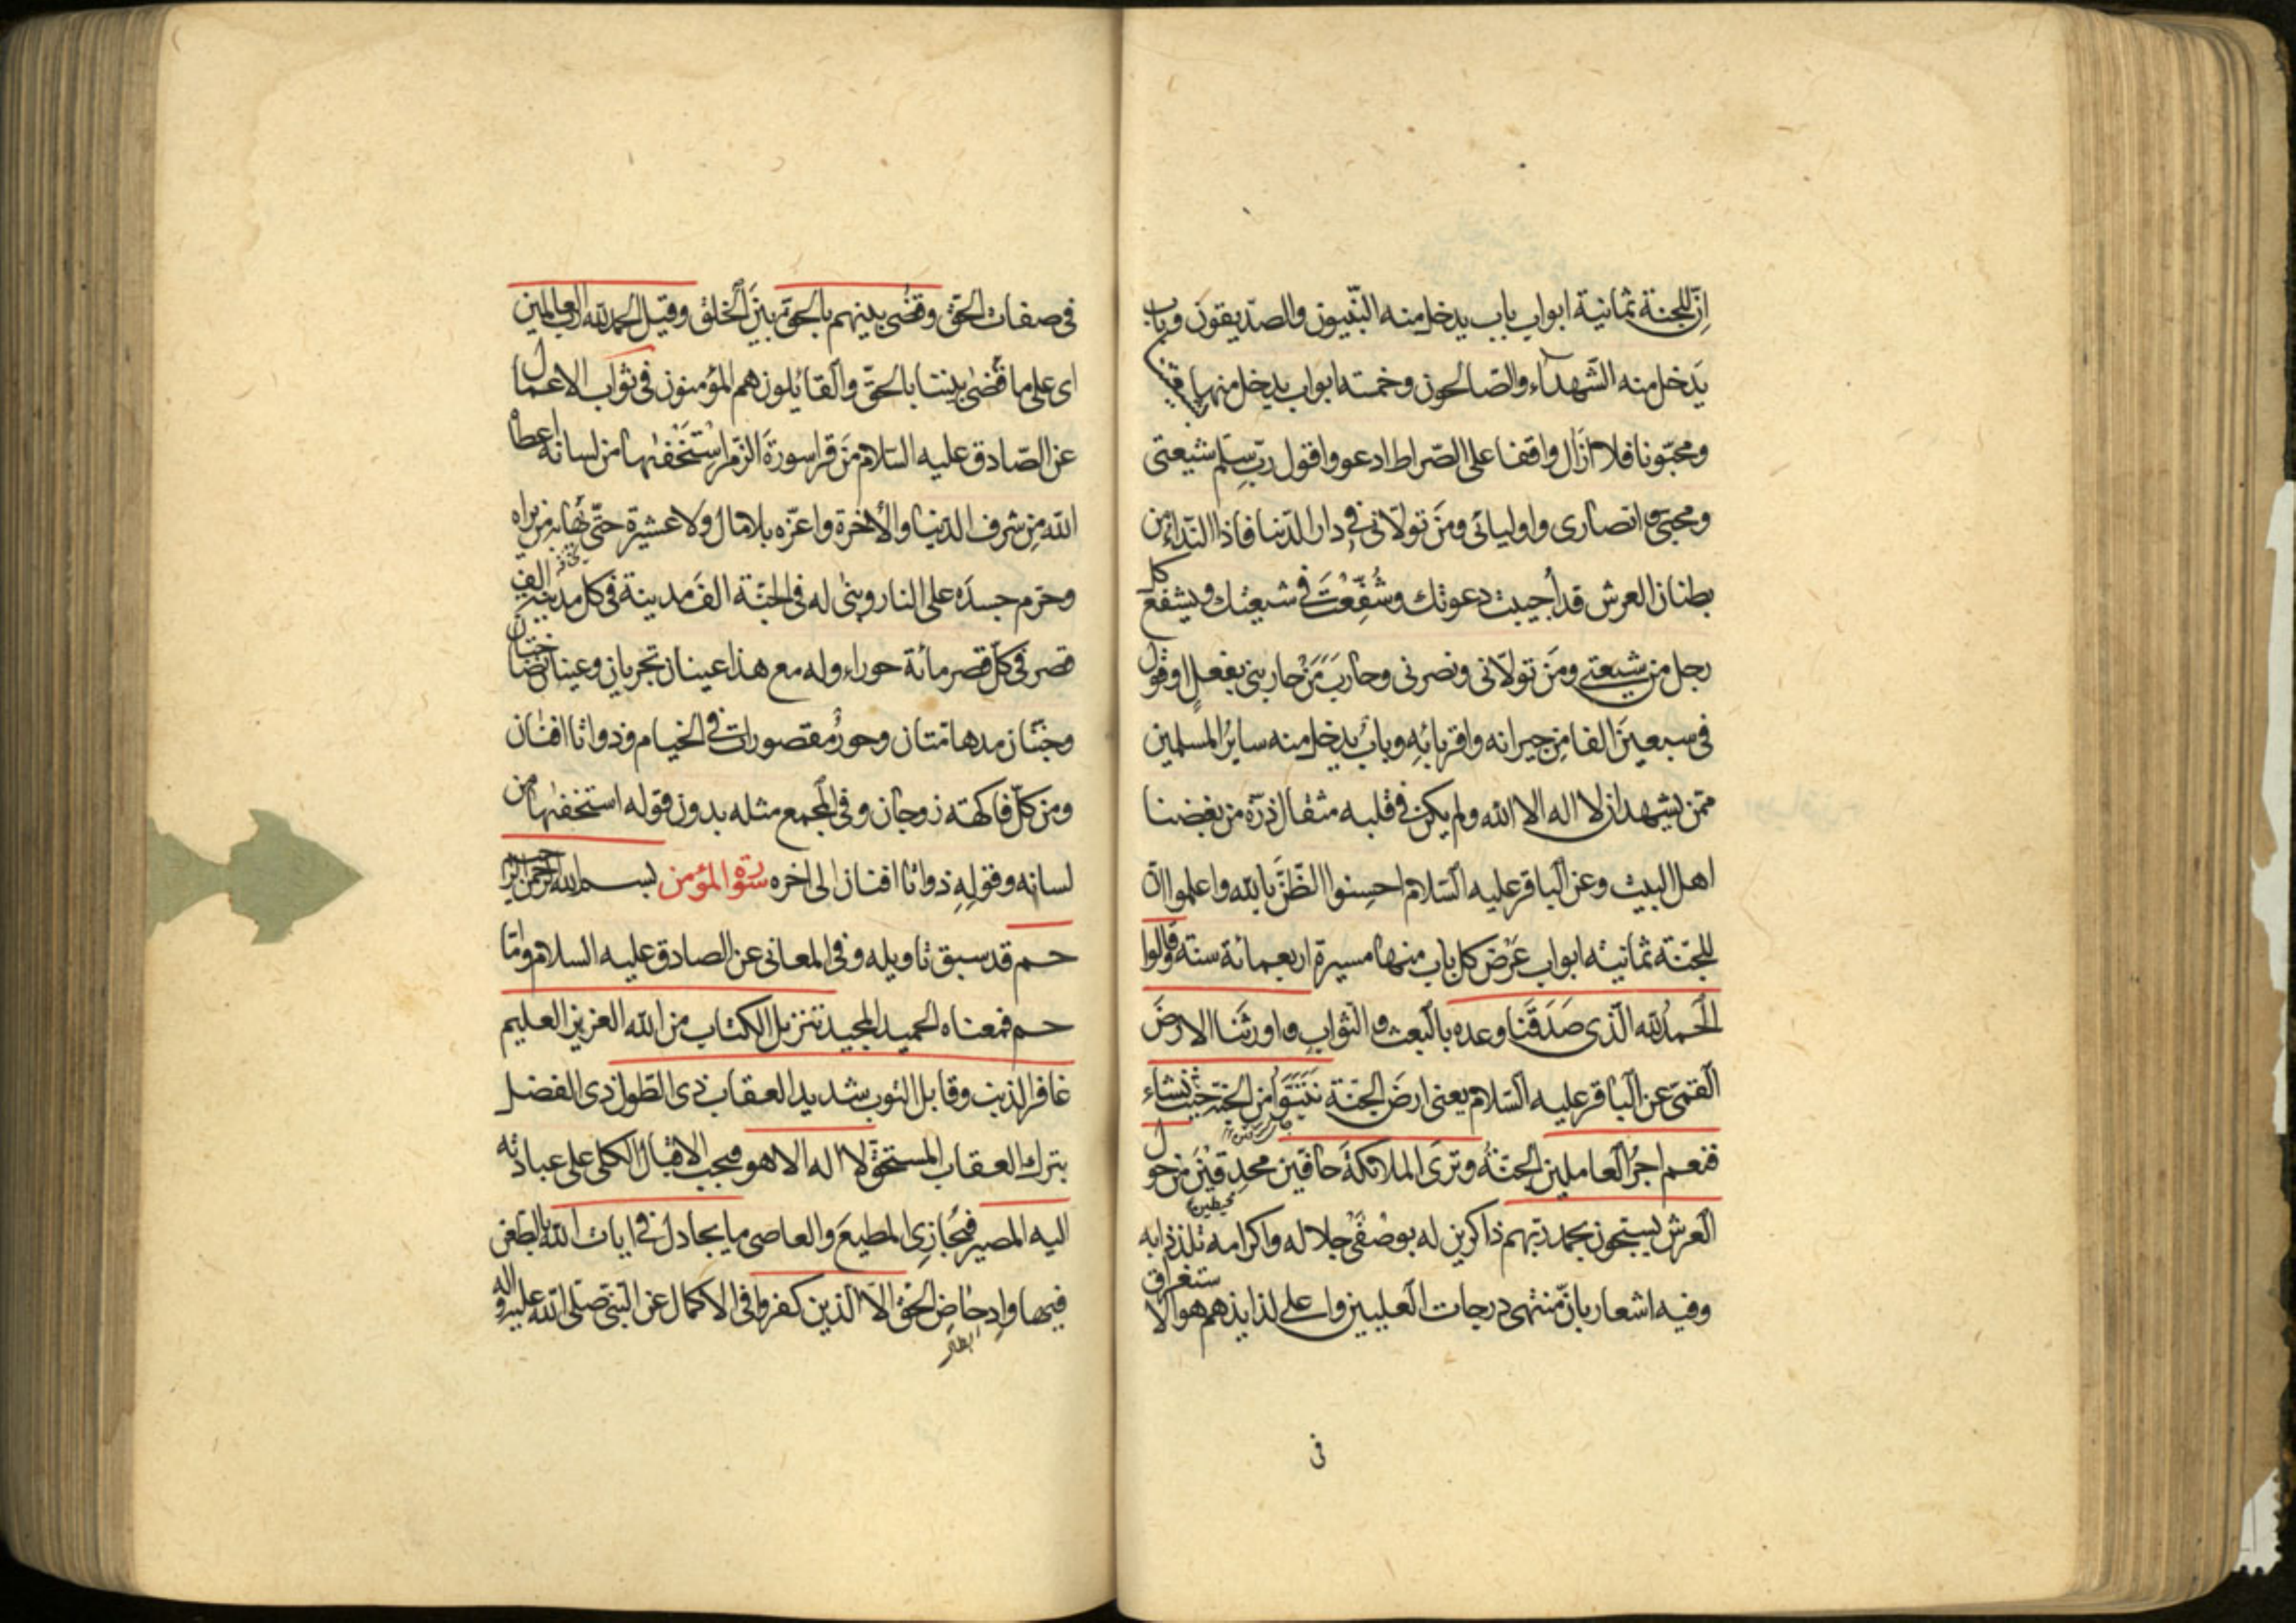 اِنّ للجنة ثمانية ابواب باب يدخل منه النّبيون والصدّيقون وباب
يَدخل منه الشّهدآء والصّالحون وخمسة ابواب يدخل منها شيعتنا
ومحبّونا فلا ازَال واقفا على الصّراط ادعو واقول ربّ سلِّم شيعتى
ومحبّى وانصارى واوليائى ومَن تولّانى فى دار الدّنيا فاذا النّداء من
بطنان العرش قد أُجيبت دعوتك وشُفِّعْتَ فى شيعتك ويشفع كل
رجل من شيعتى ومَن تولّانى ونصرنى وحارَبَ مَنْ حاربنى بفعلٍ او قول
فى سبعينَ الفا مِن جيرانه واقربائِهِ وبابٌ يدخل منه سايرُ المسلمين
ممّن يشهد ان لا اله الا الله ولم يكن فى قلبه مثقال ذرّة من بغضنا
اهل البيت وعن الباقر عليه السّلام احسِنوا الظّنَّ بالله واعلموا انّ
للجنّة ثمانية ابواب عَرْض كل باب منها مسيرة اربعمائة سنة وقالوا
الحَمدُ لله الّذى صَدَقَنا وعده بالبعث والثوابِ واورثنا الارضَ
القمّى عن الباقر عليه السّلام يعنى ارضَ الجنّة نَتَبَوَّأ من الجنّة حَيْث نشاء
فنعم اجرُ العاملين الجنّةُ وترَى الملائكةَ حافّين محدِقِيْنَ من حول
محيطين
العرش يسبّحون بحمد ربّهم ذاكرين له بوصْفَى جلاله واكرامه تلذّذا به
وفيه اشعار بانّ منتهى درجات العلّيين واعلى لذايذهم هو الاستغراق
فى
فى صفات الحَقّ وقضى بينهم بالحقّ بينَ الخلق وقيل الحمد لله ربّ العالمين
اى على ما قضٰى بيننا بالحقّ والقائلون هم المؤمنون فى ثواب الاعمال
عن الصّادق عليه السّلام مَن قرا سورةَ الزّمر استَخَفّها من لسانه اعطاه
الله مِن شرف الدّنيا والأخرة واعزّه بلا مال ولا عشيرة حتّى يهابه من يراه
وحرّم جسدَه على النار وبنٰى له فى الجنّة الفَ مدينة فى كل مدينة الف
قصر فى كلّ قصر مائة حوراء وله مع هذا عينان تجريان وعينان نضّاختان
وجنّتان مدهامّتان وحورٌ مقصورات فى الخيام وذواتا افنان
ومن كلّ فاكهة زوجان وفى المجمع مثله بدون قوله استخفّها من
لسانه وقولِهِ ذواتا افنان الى اخره سورة المؤمن بسم الله الرّحمن الرّحيم
حم قد سبق تاويله وفى المعانى عن الصادق عليه السلام وامّا
حم فمعناه الحميد المجيد تنزيل الكتاب من الله العزيز العليم
غافر الذنب وقابل التوب شديد العقاب ذى الطّول ذى الفضل
بترك العقاب المستحقّ لا اله الا هو فيجب الاقبال الكلى على عبادته
اليه المصير فيُجازِى المطيعَ والعاصى ما يجادل فى ايات الله بالطّعن
فيها وادحاضِ الحَقّ الّا الّذين كفروا فى الاكمال عن النّبىّ صلّى الله عليه واله